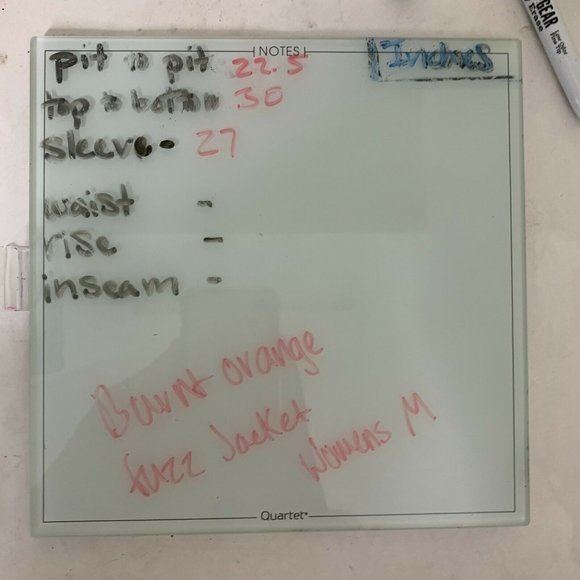 NOTES
Inches
pit to pit 22.5
top to bottom 30
sleeve - 27
waist -
rise -
inseam -
Burnt orange
fuzz Jacket
Womens M
Quartet
GEAR
Erase